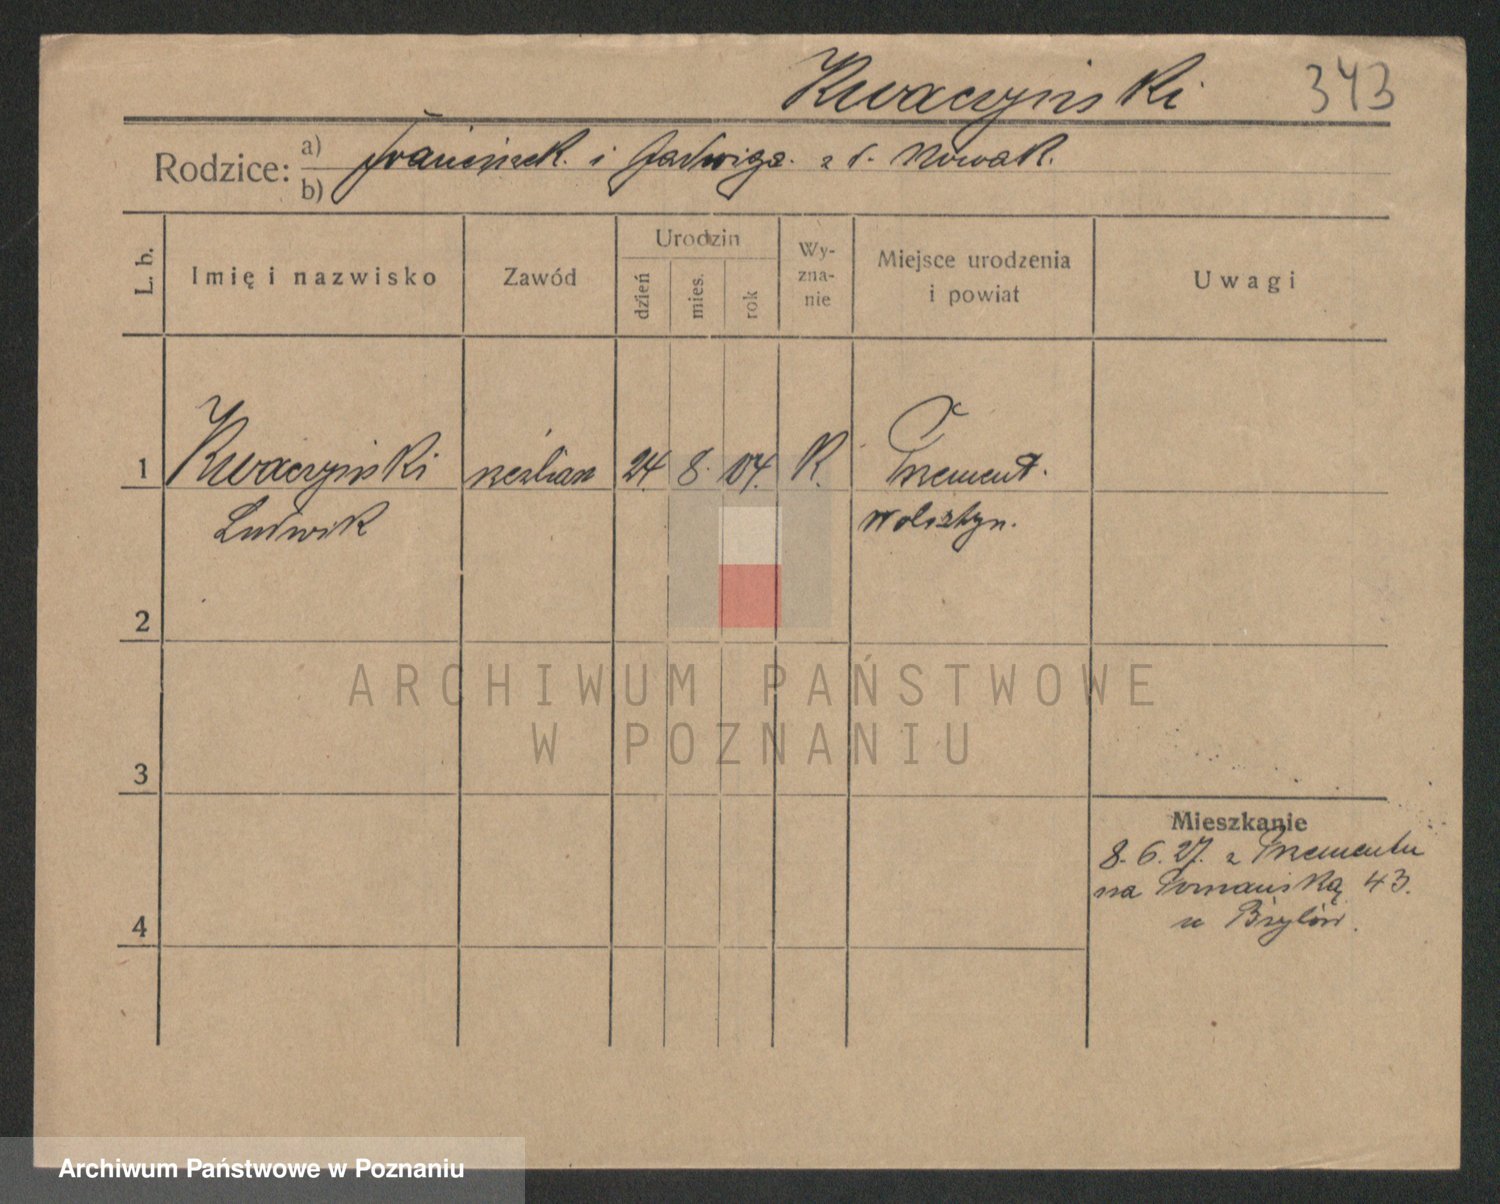 Kwaczyński 343
Rodzice: a) Franciszek i Jadwiga z d. Nowak.
b)
L. b.
Imię i nazwisko
Zawód
Urodzin
dzień
mies.
rok
Wy-
zna-
nie
Miejsce urodzenia
i powiat
Uwagi
1 Kwaczyński 24. 8. 04. R. Przement.
Ludwik Wolsztyn.
2
3
4
Mieszkanie
8. 6. 27. z Przementu
na Poznańską 43.
u
ARCHIWUM PAŃSTWOWE
W POZNANIU
Archiwum Państwowe w Poznaniu